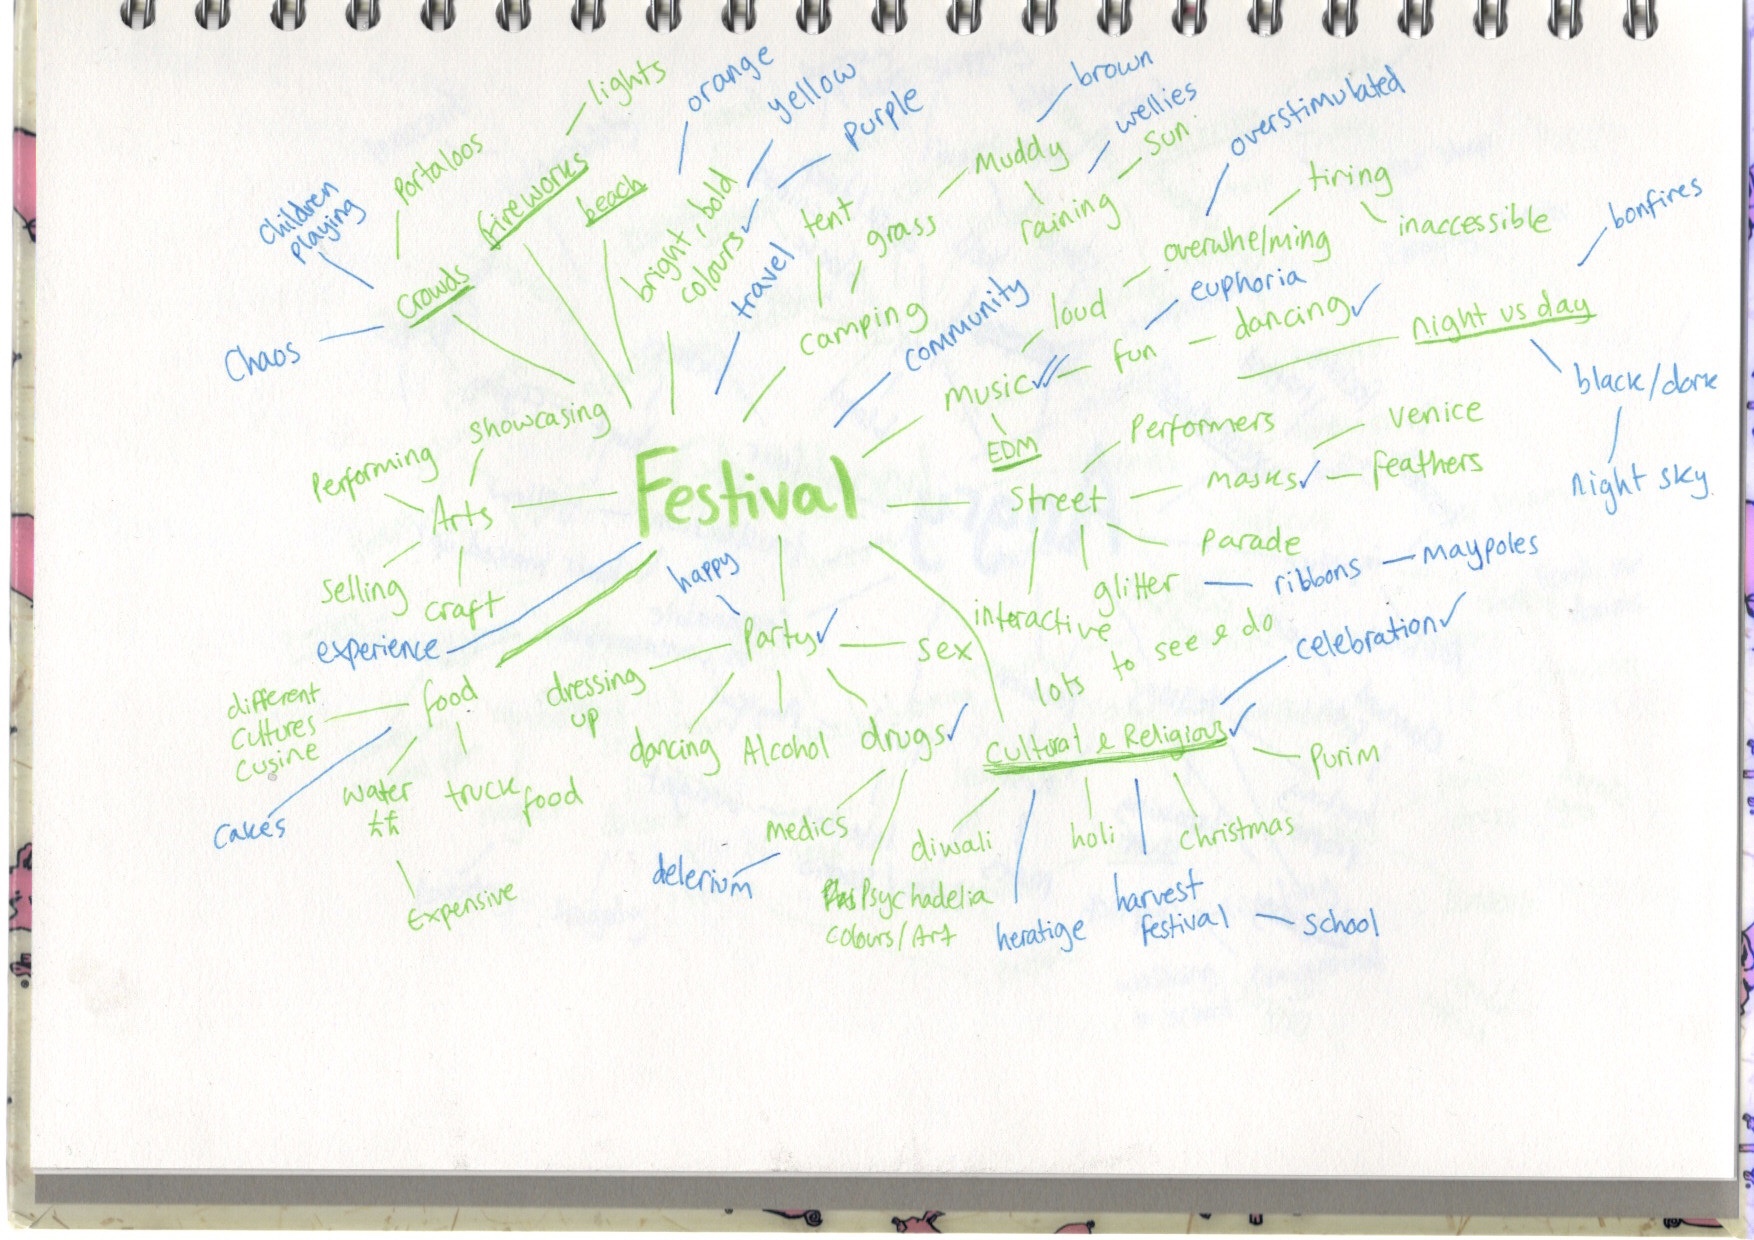 lights
orange
yellow
purple
brown
wellies
sun
overstimulated
Portaloos
fireworks
beach
bright, bold
colours
travel
tent
grass
Muddy
raining
tiring
inaccessible
overwhelming
bonfires
children
playing
crowds
Chaos
camping
community
loud
euphoria
fun
dancing
night vs day
black/dark
night sky
music
EDM
showcasing
Performing
Arts
selling
craft
Festival
Street
Performers
masks
Venice
feathers
Parade
glitter
ribbons
maypoles
interactive
lots to see & do
celebration
experience
happy
Party
sex
dressing
up
dancing
Alcohol
drugs
food
different
cultures
cusine
cakes
water
££
truck food
Expensive
medics
delerium
Psychadelia
colours/Art
Cultural & Religious
Purim
diwali
holi
christmas
heratige
harvest
festival
school